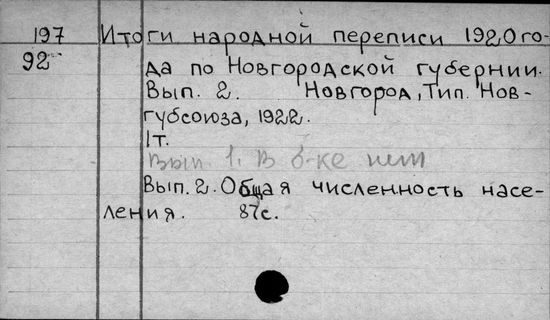 197 Итоги народной переписи 1920 го-
92 да по Новгородской губернии.
Вып. 2. Новгород, Тип. Нов-
губсоюза, 1922.
1т.
Вып. 1. В б-ке нет
Вып. 2. Общая численность насе-
ления. 87с.